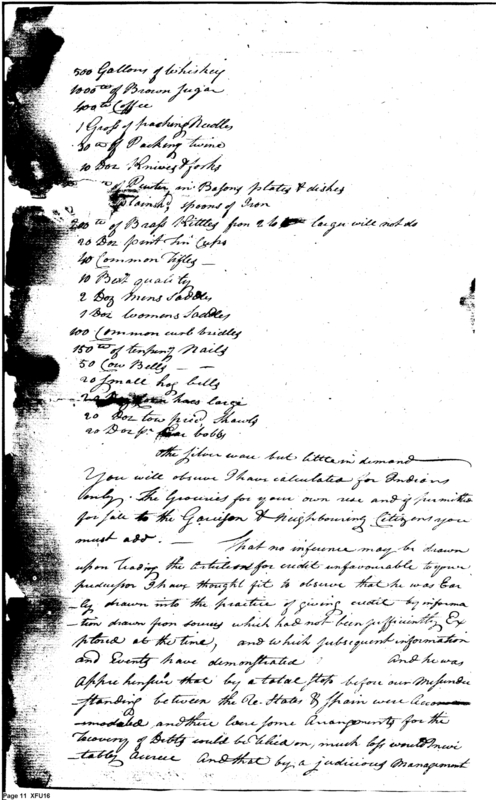 500 Gallons of Whiskey
1000 lbs of Brown Sugar
400 lb Coffee
1 Gross of packing Needles
30 lb of Packing twine
10 Doz Knives & forks
of Pewter in Basons plates & dishes
spoons of Iron
200 lb of Brass Kittles from 2 to larger will not do
20 Doz pint tin Cups
40 Common Rifles —
10 Best quality
2 Doz mens Saddles
1 Doz womens Saddles
100 Common curb bridles
150 lb of tenpenny Nails
50 Cow Bells — —
20 Small hog bells
hoes large
20 Doz low priced Shawls
20 Doz pr Ear bobbs
Othe Silver ware but little in demand
You will observe I have calculated for Indians
only. The Groceries for your own use and if permitted
for sale to the Garrison & Neighbouring Citizens you
must add. — That no inference may be drawn
upon reading the for credit unfavourable to your
predecessor I have thought fit to observe that he was Ear
-ly drawn into the practice of giving credit by informa
-tion drawn from sources which had not been sufficiently Ex
plored at the time, and which subsequent information
and Events have demonstrated: And he was
apprehensive that by a total stop before our misunder
-standing between the U. States & Spain were accom
-modated and there were some arrangements for the
recovery of Debts could be relied on, much loss would inevi
-tably accrue And that by a judicious management
Page 11 XFU16